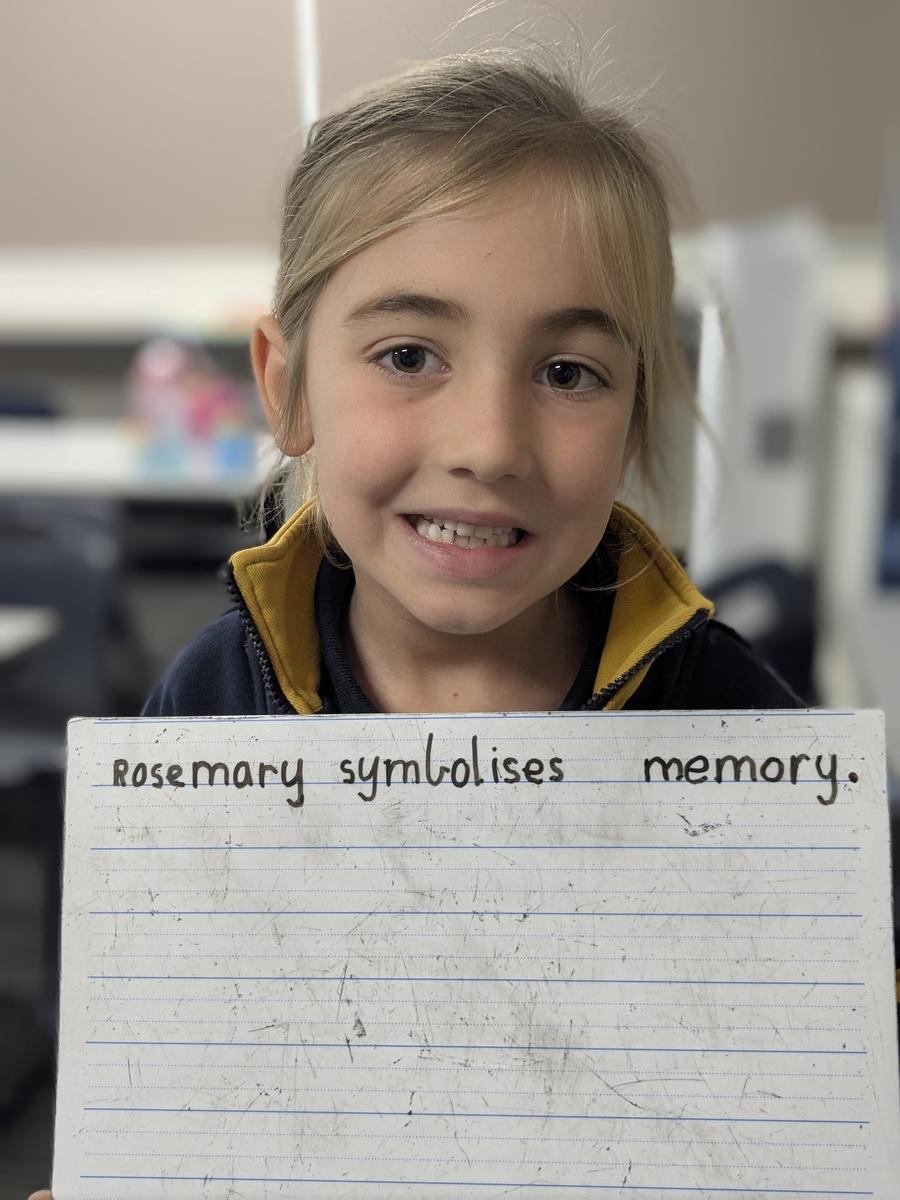 Rosemary symbolises memory.